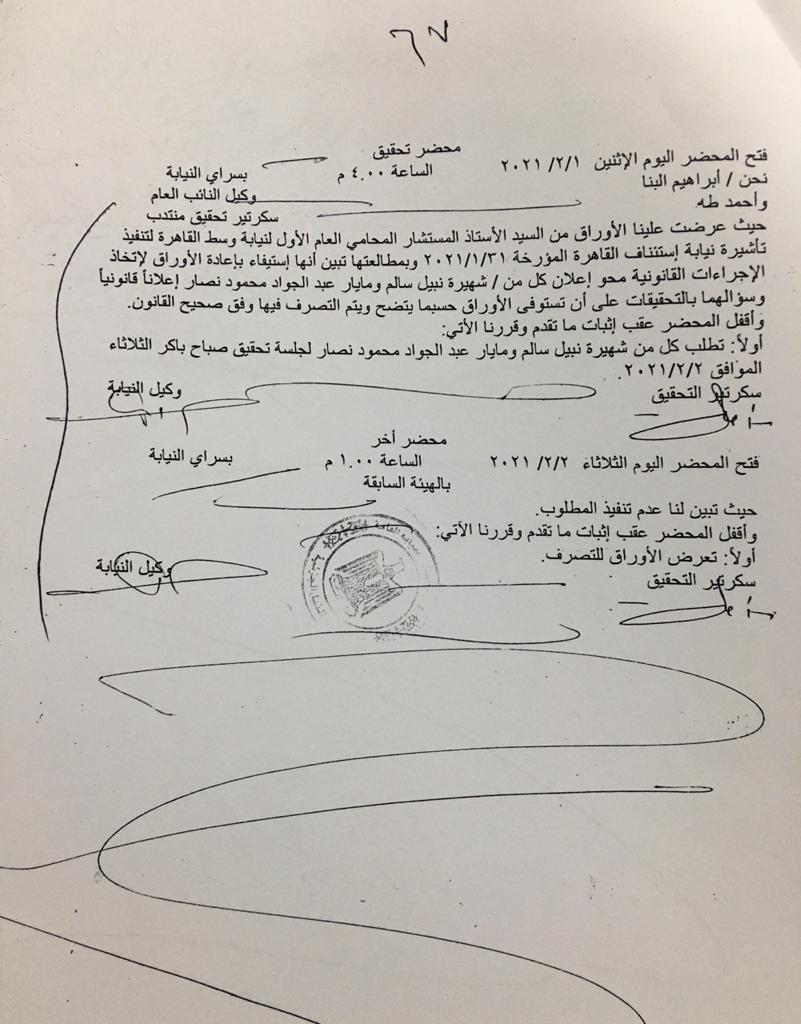 ٦٢
محضر تحقيق
فتح المحضر اليوم الإثنين ٢٠٢١ /٢/١ الساعة ٤.٠٠ م بسراي النيابة
نحن / أبراهيم البنا وكيل النائب العام
وأحمد طه سكرتير تحقيق منتدب
حيث عرضت علينا الأوراق من السيد الأستاذ المستشار المحامي العام الأول لنيابة وسط القاهرة لتنفيذ
تأشيرة نيابة إستئناف القاهرة المؤرخة ٢٠٢١/١/٣١ وبمطالعتها تبين أنها إستيفاء بإعادة الأوراق لإتخاذ
الإجراءات القانونية محو إعلان كل من / شهيرة نبيل سالم ومايار عبد الجواد محمود نصار إعلاناً قانونياً
وسؤالهما بالتحقيقات على أن تستوفى الأوراق حسبما يتضح ويتم التصرف فيها وفق صحيح القانون.
وأقفل المحضر عقب إثبات ما تقدم وقررنا الأتي:
أولاً: تطلب كل من شهيرة نبيل سالم ومايار عبد الجواد محمود نصار لجلسة تحقيق صباح باكر الثلاثاء
الموافق ٢٠٢١/٢/٢.
سكرتير التحقيق وكيل النيابة
محضر أخر
فتح المحضر اليوم الثلاثاء ٢٠٢١ /٢/٢ الساعة ١.٠٠ م بسراي النيابة
بالهيئة السابقة
حيث تبين لنا عدم تنفيذ المطلوب.
وأقفل المحضر عقب إثبات ما تقدم وقررنا الآتي:
أولاً: تعرض الأوراق للتصرف.
سكرتير التحقيق وكيل النيابة